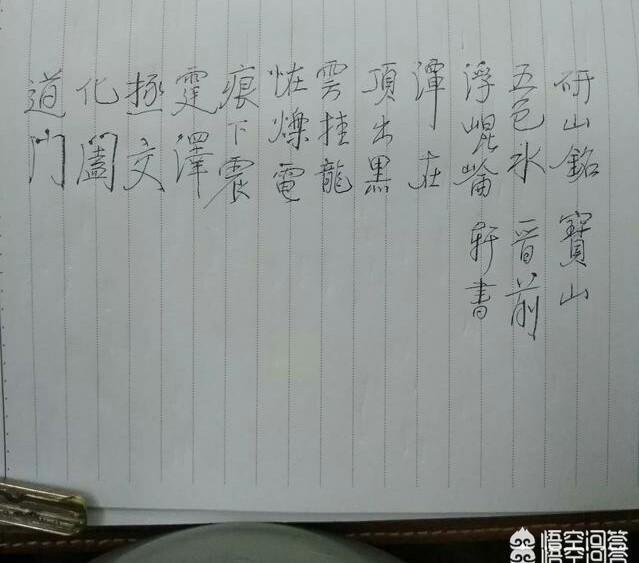 研山銘 寶山
五色水 晋前
浮崐崘 軒書
潭在
頂出黑
雲挂龍
恠爍電
痕下震
霆澤
極交
化闔
道門
悟空问答